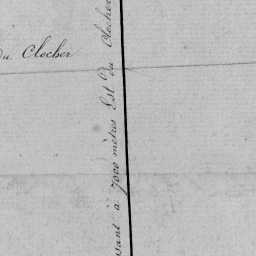 du Clocher
à 7000 mètres Est du Clocher